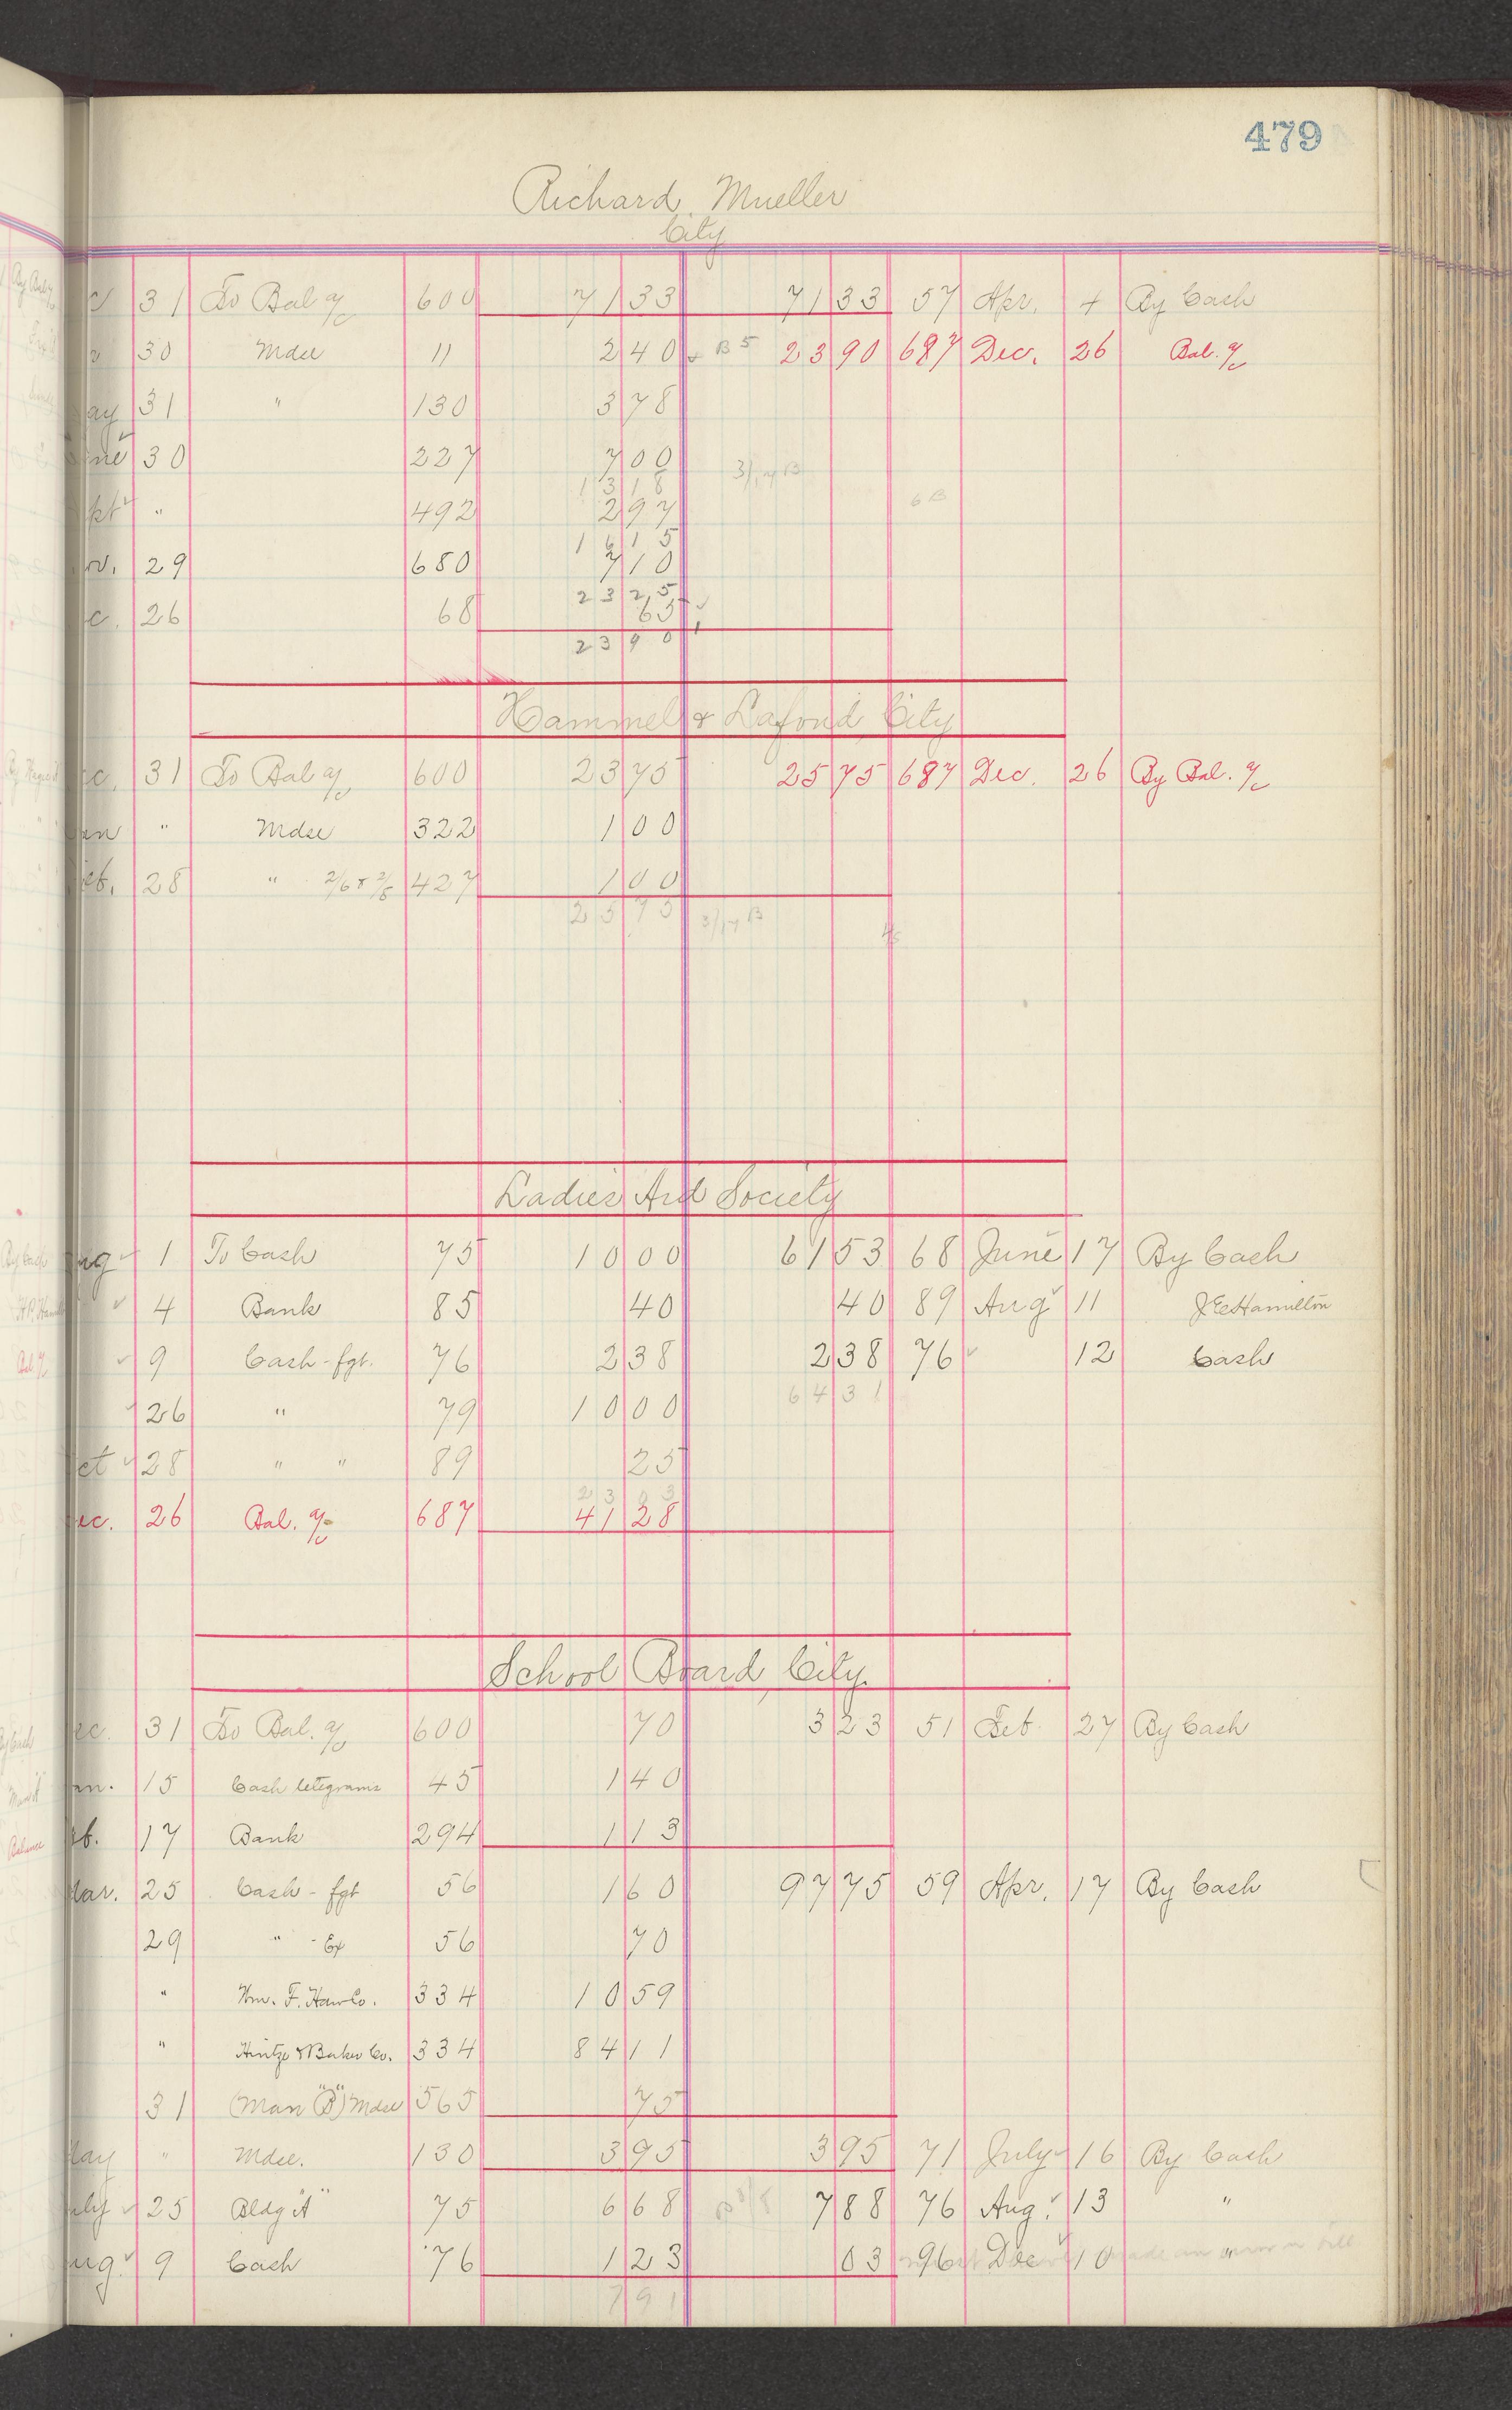 479
Richard Mueller
City
31 To Bal a/c 600 71 33 71 33 57 Apr. + By Cash
30 Mdse 11 2 40 B 5 23 90 687 Dec. 26 Bal. a/c
ay 31 " 130 3 78
ne 30 227 7 00 3/17 B
13 18 6 B
kt " 492 2 97
16 15
v. 29 680 7 10
23 25
c. 26 68 65
23 90
Hammel & Lafond, City
ec. 31 To Bal a/c 600 23 75 25 75 687 Dec. 26 By Bal. a/c
an " Mdse 322 1 00
eb. 28 " 2/6 & 2/8 427 1 00
25 75 3/17 B
Ladies Aid Society
ug 1 To Cash 75 10 00 61 53 68 June 17 By Cash
4 Bank 85 40 40 89 Aug 11 J E Hamilton
9 Cash - fgt. 76 2 38 2 38 76 12 Cash
64 31
26 " 79 10 00
ct 28 " " 89 25
23 03
ec. 26 Bal. a/c 687 41 28
School Board, City.
ec. 31 To Bal. a/c 600 70 3 23 51 Feb. 27 By Cash
an. 15 Cash telegrams 45 1 40
eb. 17 Bank 294 1 13
Mar. 25 Cash - fgt 56 1 60 97 75 59 Apr. 17 By Cash
29 " - Ex 56 70
" Wm. F. Haw Co. 334 10 59
" Hintze & Baker Co. 334 84 11
31 (Man "B") Mdse 565 75
May " Mdse. 130 3 95 3 95 71 July 16 By Cash
uly 25 Bldg "A" 75 6 68 7 88 76 Aug. 13 "
ug. 9 Cash 76 1 23 03 96 Dec 10 "
7 91